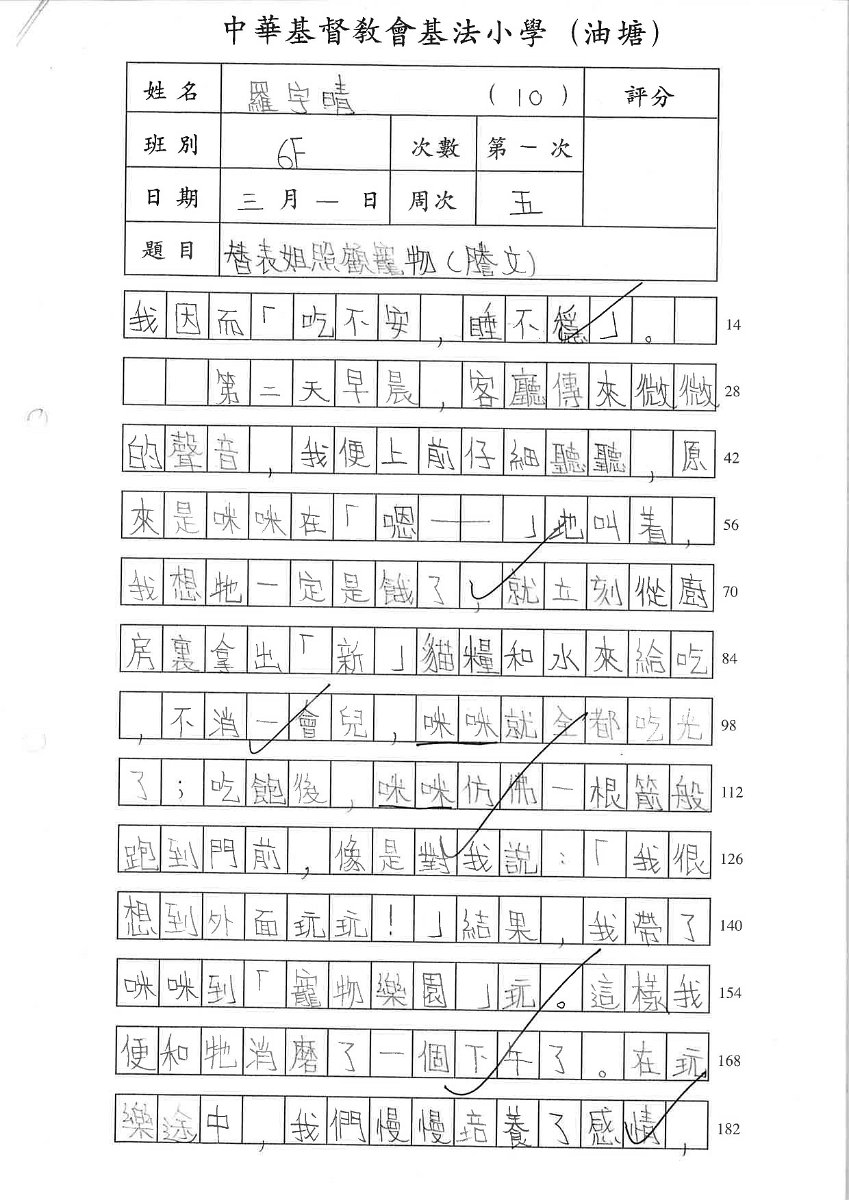 中華基督教會基法小學（油塘）
姓名 羅宇晴 （10） 評分
班別 6F 次數 第一次
日期 三月一日 周次 五
題目 替表姐照顧寵物（謄文）
我因而「吃不安，睡不穩」。 14
第二天早晨，客廳傳來微微 28
的聲音，我便上前仔細聽聽，原 42
來是咪咪在「嗯——」地叫着， 56
我想牠一定是餓了，就立刻從廚 70
房裏拿出「新」貓糧和水來給吃 84
，不消一會兒，咪咪就全都吃光 98
了；吃飽後，咪咪仿佛一根箭般 112
跑到門前，像是對我說：「我很 126
想到外面玩玩！」結果，我帶了 140
咪咪到「寵物樂園」玩。這樣我 154
便和牠消磨了一個下午了。在玩 168
樂途中，我們慢慢培養了感情， 182